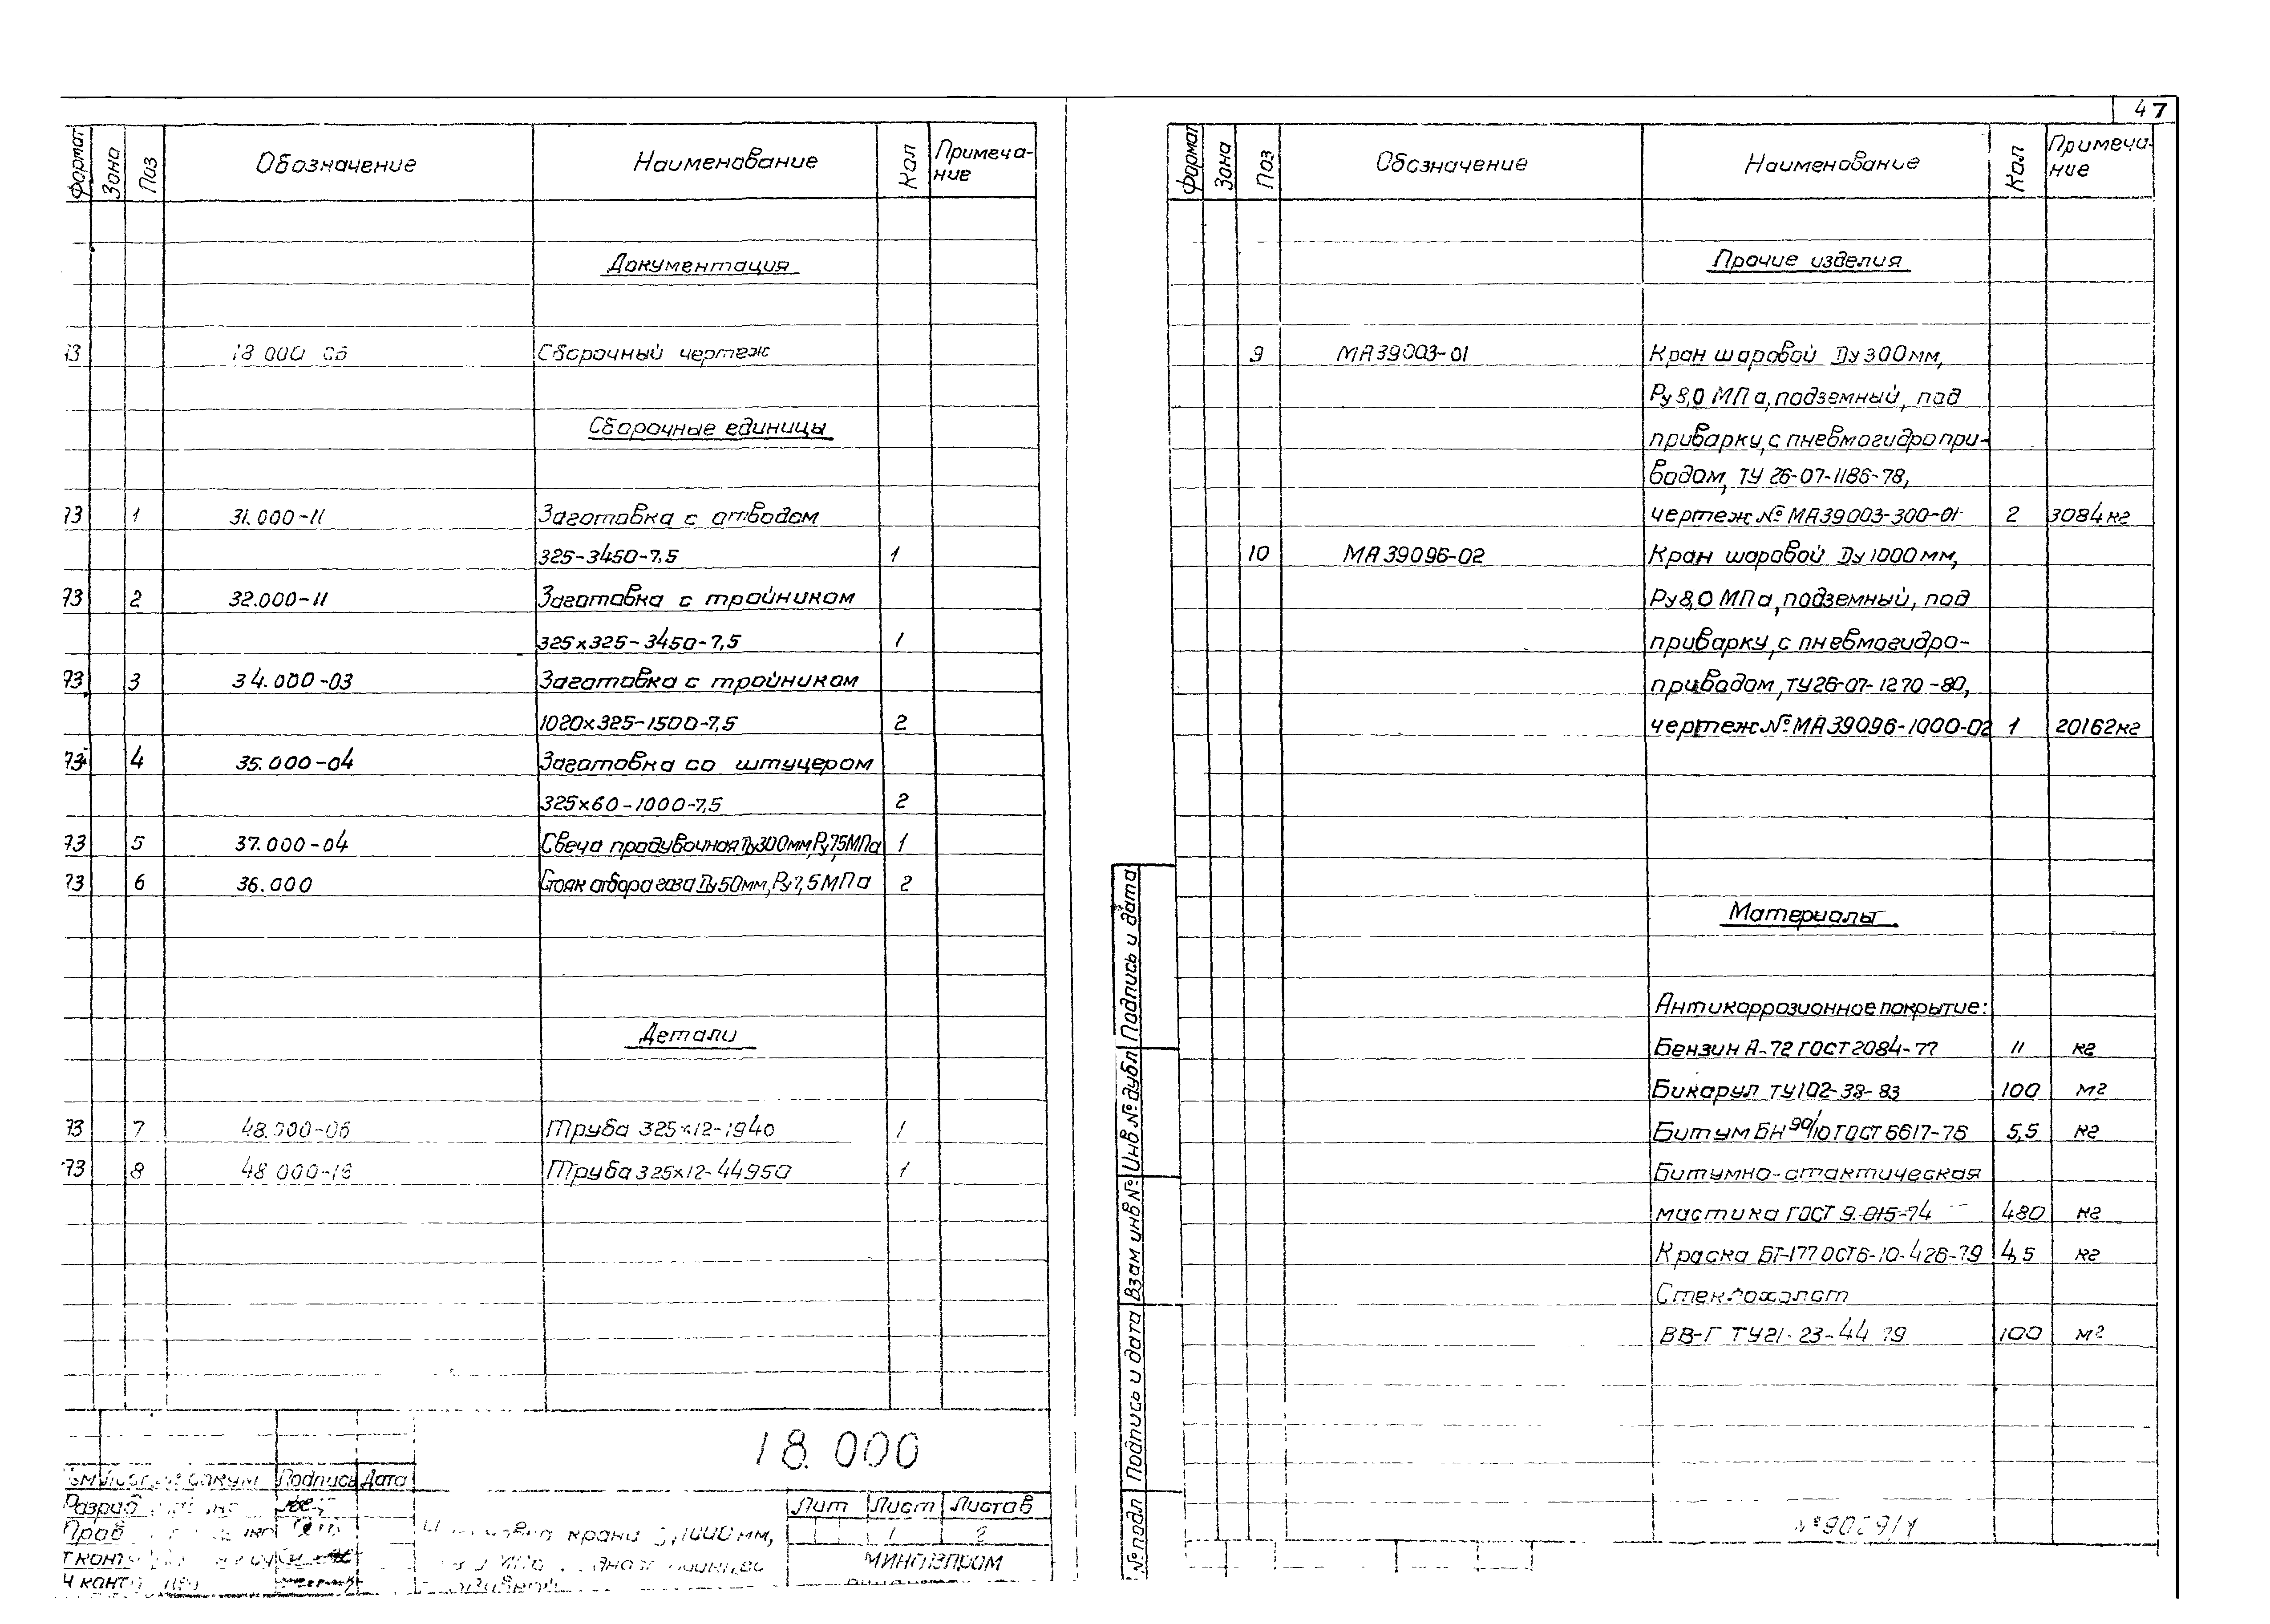 47
Формат Зона Поз Обозначение Наименование Кол Примеча-
ние
Документация
18 000 СБ Сборочный чертеж
Сборочные единицы
1 31.000-11 Заготовка с отводом
325-3450-7,5 1
2 32.000-11 Заготовка с тройником
325х325-3450-7,5 1
3 34.000-03 Заготовка с тройником
1020х325-1500-7,5 2
4 35.000-04 Заготовка со штуцером
325х60-1000-7,5 2
5 37.000-04 Свеча продувочная Ду300мм,Ру7,5МПа 1
6 36.000 Стояк отбора газа Ду50мм,Ру7,5МПа 2
Детали
7 48.000-06 Труба 325х12-1940 1
8 48 000-16 Труба 325х12-44950 1
18.000
Подпись Дата
Разраб
Пров
Т конт
Н конт
крана 1000 мм,
Лит Лист Листов
1 2
МИНГАЗПРОМ
Формат Зона Поз Обозначение Наименование Кол Примеча-
ние
Прочие изделия
9 МА39003-01 Кран шаровой Ду300мм,
Ру 8,0 МПа, подземный, под
приварку, с пневмогидропри-
водом, ТУ 26-07-1186-78,
чертеж № МА39003-300-01 2 3084кг
10 МА39096-02 Кран шаровой Ду 1000мм,
Ру8,0 МПа, подземный, под
приварку, с пневмогидро-
приводом, ТУ26-07-1270-80,
чертеж № МА39096-1000-02 1 20162кг
Материалы
Антикоррозионное покрытие:
Бензин А-72 ГОСТ 2084-77 11 кг
Бикарул ТУ102-38-83 100 м2
Битум БН 90/10 ГОСТ 6617-76 5,5 кг
Битумно-атактическая
мастика ГОСТ 9.015-74 480 кг
Краска БТ-177 ОСТ6-10-426-79 4,5 кг
Стеклохолст
ВВ-Г ТУ21-23-44 79 100 м2
Подпись и дата
Инв № дубл
Взам инв №
Подпись и дата
№ подл